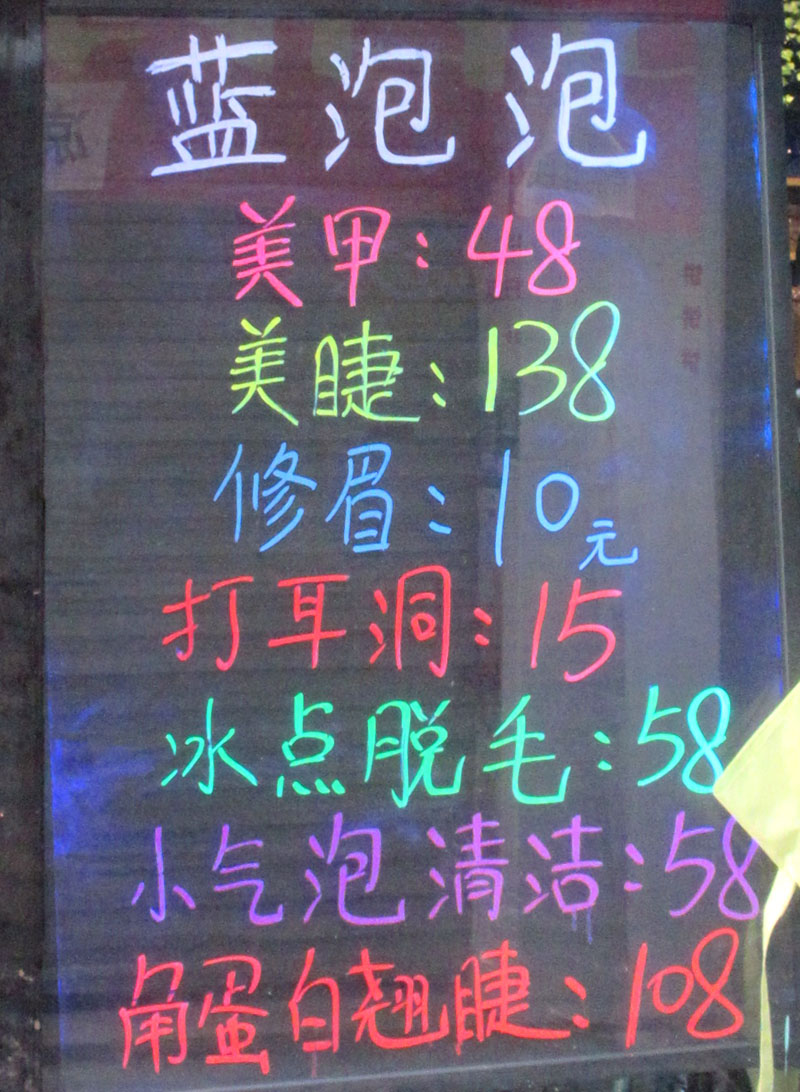 蓝泡泡
美甲：48
美睫：138
修眉：10元
打耳洞：15
冰点脱毛：58
小气泡清洁：58
角蛋白翘睫：108